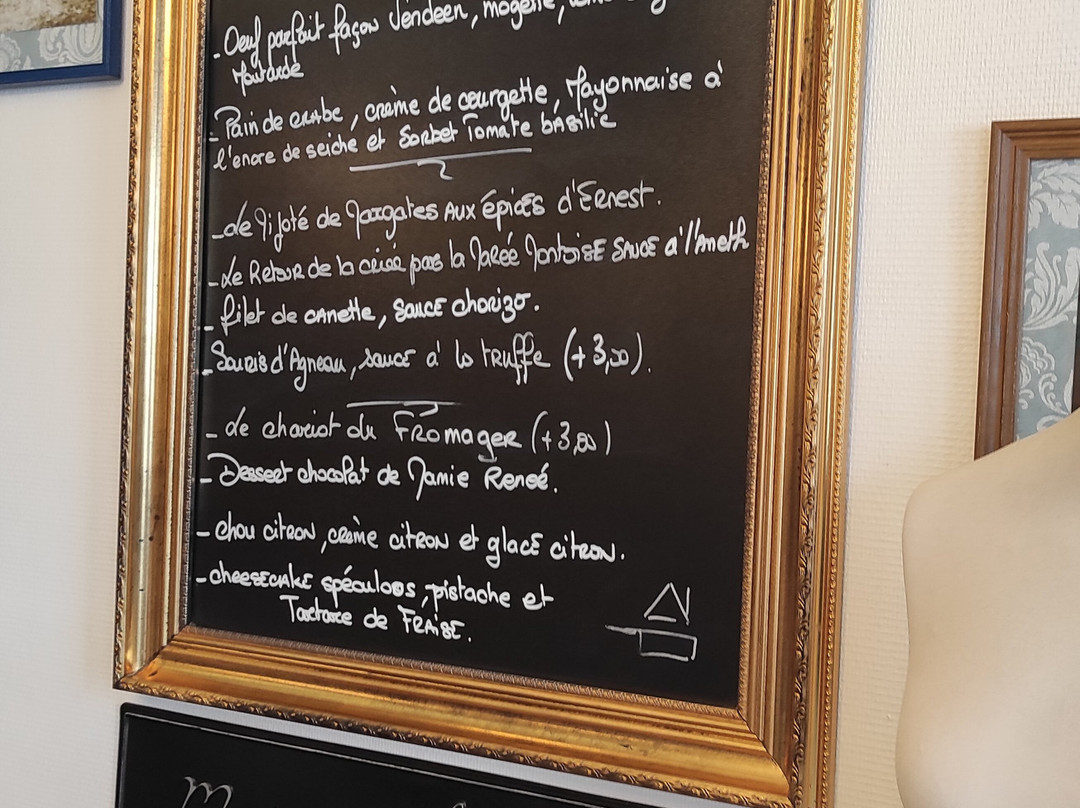 - Oeuf parfait façon Vendéen, mogette,
Moutarde
- Pain de crabe, crème de courgette, Mayonnaise à
l'encre de seiche et Sorbet Tomate basilic
- Le Mijoté de Margates aux épices d'Ernest.
- Le Retour de la criée par la Marée Montoise sauce à l'Aneth
- filet de canette, sauce chorizo.
- Souris d'Agneau, sauce à la truffe (+3,00).
- Le chariot du Fromager (+3,00)
- Dessert chocolat de Mamie Renée.
- chou citron, crème citron et glace citron.
- cheesecake spéculoos, pistache et
Tartare de Fraise.